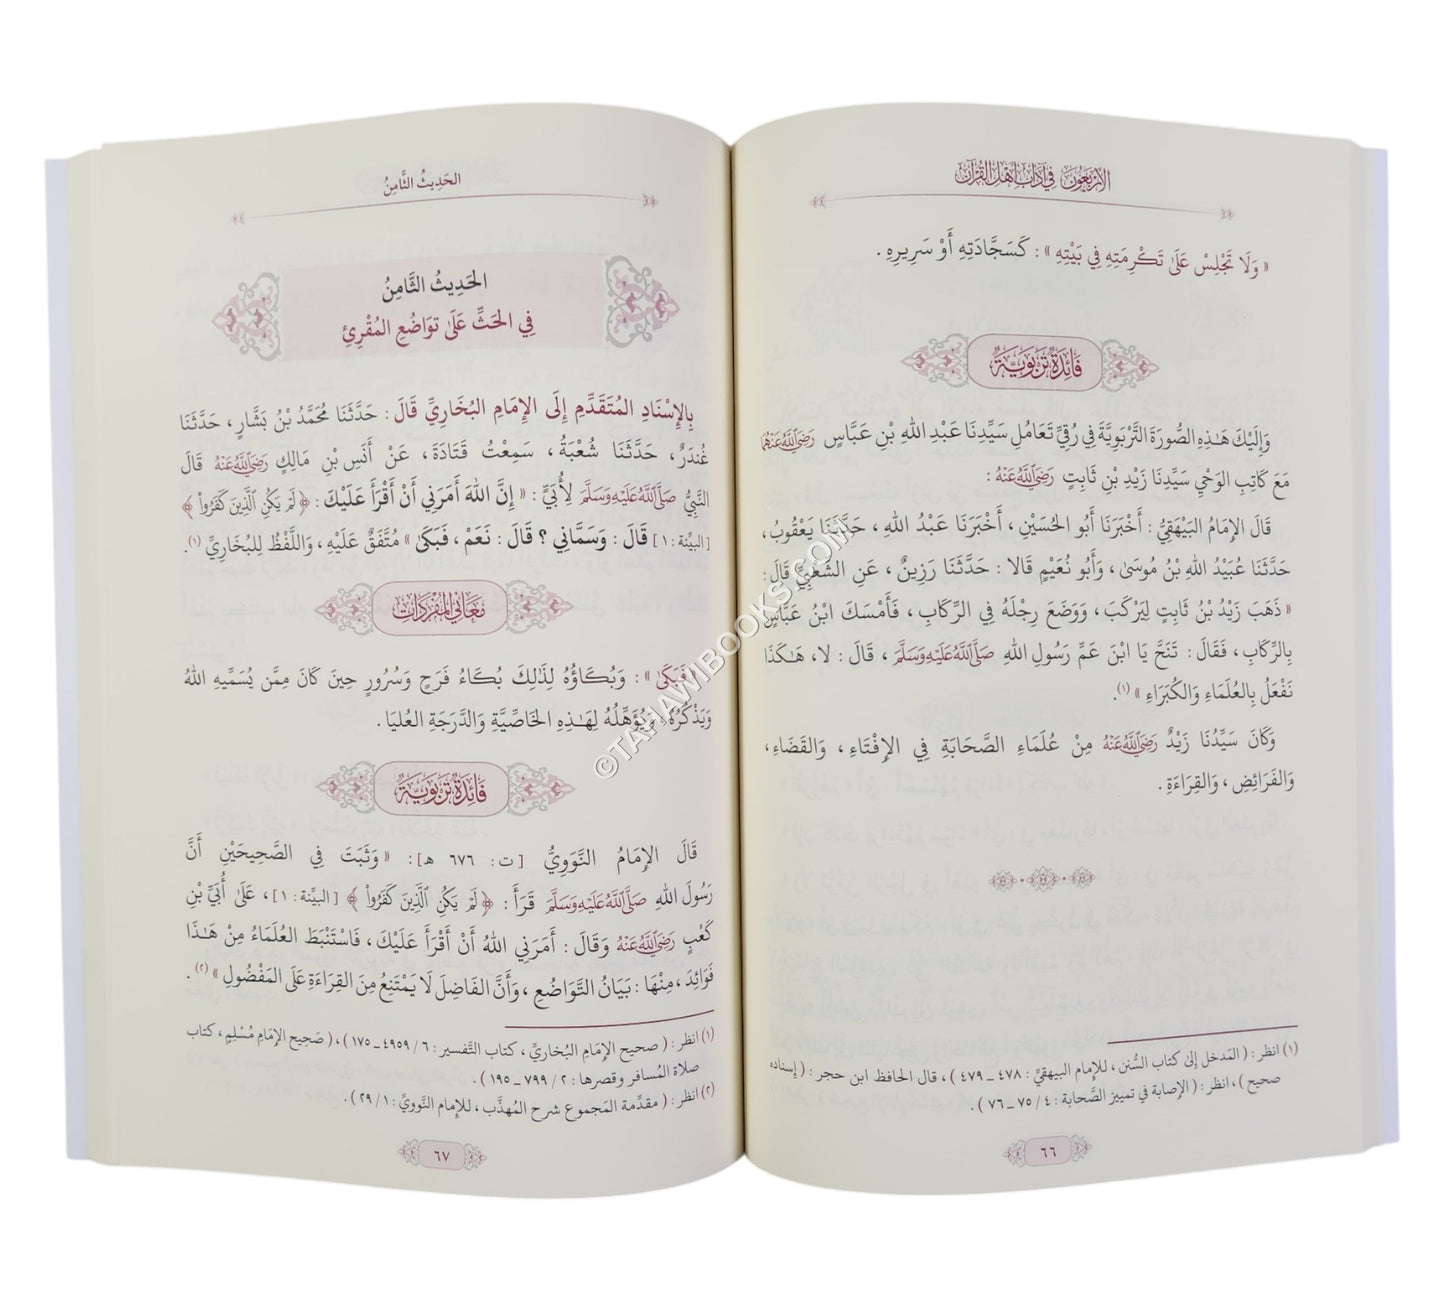 الأربعون في آداب أهل القرآن
« وَلَا تَجْلِسْ عَلَىٰ تَكْرِمَتِهِ فِي بَيْتِهِ » : كَسَجَّادَتِهِ أَوْ سَرِيرِهِ .
فَائِدَةٌ تَرْبَوِيَّةٌ
وَإِلَيْكَ هَـٰذِهِ الصُّورَةَ التَّرْبَوِيَّةَ فِي رُقِيِّ تَعَامُلِ سَيِّدِنَا عَبْدِ اللهِ بْنِ عَبَّاسٍ رَضِيَ اللَّهُ عَنْهُمَا
مَعَ كَاتِبِ الوَحْيِ سَيِّدِنَا زَيْدِ بْنِ ثَابِتٍ رَضِيَ اللَّهُ عَنْهُ :
قَالَ الإِمَامُ البَيْهَقِيُّ : أَخْبَرَنَا أَبُو الحُسَيْنِ ، أَخْبَرَنَا عَبْدُ اللهِ ، حَدَّثَنَا يَعْقُوبُ ،
حَدَّثَنَا عُبَيْدُ اللهِ بْنُ مُوسَىٰ ، وَأَبُو نُعَيْمٍ قَالَا : حَدَّثَنَا رَزِينٌ ، عَنِ الشَّعْبِيِّ قَالَ :
« ذَهَبَ زَيْدُ بْنُ ثَابِتٍ لِيَرْكَبَ ، وَوَضَعَ رِجْلَهُ فِي الرِّكَابِ ، فَأَمْسَكَ ابْنُ عَبَّاسٍ
بِالرِّكَابِ ، فَقَالَ : تَنَحَّ يَا ابْنَ عَمِّ رَسُولِ اللهِ صَلَّى اللَّهُ عَلَيْهِ وَسَلَّمَ ، قَالَ : لَا ، هَـٰكَذَا
نَفْعَلُ بِالعُلَمَاءِ وَالكُبَرَاءِ » (١).
وَكَانَ سَيِّدُنَا زَيْدٌ رَضِيَ اللَّهُ عَنْهُ مِنْ عُلَمَاءِ الصَّحَابَةِ فِي الإِفْتَاءِ ، وَالقَضَاءِ ،
وَالفَرَائِضِ ، وَالقِرَاءَةِ .
(١) انظر : ( المَدخل إلىٰ كتاب السُّنن ، للإمام البيهقيِّ : ٤٧٨ ـ ٤٧٩ ) ، قال الحافظ ابن حجر : ( إسناده
صحيح ) ، انظر : ( الإصابة في تمييز الصَّحابة : ٤ / ٧٥ ـ ٧٦ ) .
٦٦
الحَدِيثُ الثَّامِنُ
الحَدِيثُ الثَّامِنُ
فِي الحَثِّ عَلَىٰ تَوَاضُعِ المُقْرِئِ
بِالإِسْنَادِ المُتَقَدِّمِ إِلَى الإِمَامِ البُخَارِيِّ قَالَ : حَدَّثَنَا مُحَمَّدُ بْنُ بَشَّارٍ ، حَدَّثَنَا
غُنْدَرٌ ، حَدَّثَنَا شُعْبَةُ ، سَمِعْتُ قَتَادَةَ ، عَنْ أَنَسِ بْنِ مَالِكٍ رَضِيَ اللَّهُ عَنْهُ قَالَ
النَّبِيُّ صَلَّى اللَّهُ عَلَيْهِ وَسَلَّمَ لِأُبَيٍّ : « إِنَّ اللهَ أَمَرَنِي أَنْ أَقْرَأَ عَلَيْكَ : ﴿ لَمْ يَكُنِ ٱلَّذِينَ كَفَرُواْ ﴾
[البيِّنة : ١] قَالَ : وَسَمَّانِي ؟ قَالَ : نَعَمْ ، فَبَكَىٰ » مُتَّفَقٌ عَلَيْهِ ، وَاللَّفْظُ لِلبُخَارِيِّ (١).
مَعَانِي المُفْرَدَاتِ
« فَبَكَىٰ » : وَبُكَاؤُهُ لِذَٰلِكَ بُكَاءُ فَرَحٍ وَسُرُورٍ حِينَ كَانَ مِمَّن يُسَمِّيهِ اللهُ
وَيَذْكُرُهُ ، وَيُؤَهِّلُهُ لِهَـٰذِهِ الخَاصِّيَّةِ وَالدَّرَجَةِ العُليَا .
فَائِدَةٌ تَرْبَوِيَّةٌ
قَالَ الإِمَامُ النَّوَوِيُّ [ت : ٦٧٦ هـ] : « وَثَبَتَ فِي الصَّحِيحَيْنِ أَنَّ
رَسُولَ اللهِ صَلَّى اللَّهُ عَلَيْهِ وَسَلَّمَ قَرَأَ : ﴿ لَمْ يَكُنِ ٱلَّذِينَ كَفَرُواْ ﴾ [البيِّنة : ١] ، عَلَىٰ أُبَيِّ بْنِ
كَعْبٍ رَضِيَ اللَّهُ عَنْهُ وَقَالَ : أَمَرَنِي اللهُ أَنْ أَقْرَأَ عَلَيْكَ ، فَاسْتَنْبَطَ العُلَمَاءُ مِنْ هَـٰذَا
فَوَائِدَ ، مِنْهَا : بَيَانُ التَّوَاضُعِ ، وَأَنَّ الفَاضِلَ لَا يَمْتَنِعُ مِنَ القِرَاءَةِ عَلَى المَفْضُولِ » (٢) .
(١) انظر : ( صحيح الإمَامِ البُخاريِّ ، كتاب التَّفسير : ٦ / ٤٩٥٩ ـ ١٧٥ ) ، ( صَحِيح الإمَامِ مُسْلِمٍ ، كتاب
صلاة المُسافر وقصرها : ٢ / ٧٩٩ ـ ١٩٥ ) .
(٢) انظر : ( مقدِّمة المَجموع شرح المُهذَّب ، للإمام النَّوويِّ : ١ / ٢٩ ) .
٦٧
©TAHAWIBOOKS.COM